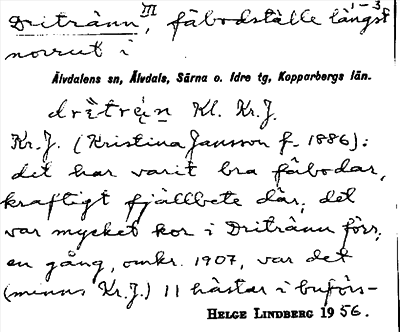 Dritränn III, fäbodställe längst 1-3
norrut i
Älvdalens sn, Älvdals, Särna o. Idre tg, Kopparbergs län.
drìtrén Kl. Kr.J.
Kr.J. (Kristina Jansson f. 1886):
det har varit bra fäbodar,
kraftigt fjällbete där, det
var mycket kor i Dritränn förr,
en gång, omkr. 1907, var det
(minns Kr.J.) 11 hästar i buförs-
HELGE LINDBERG 1956.